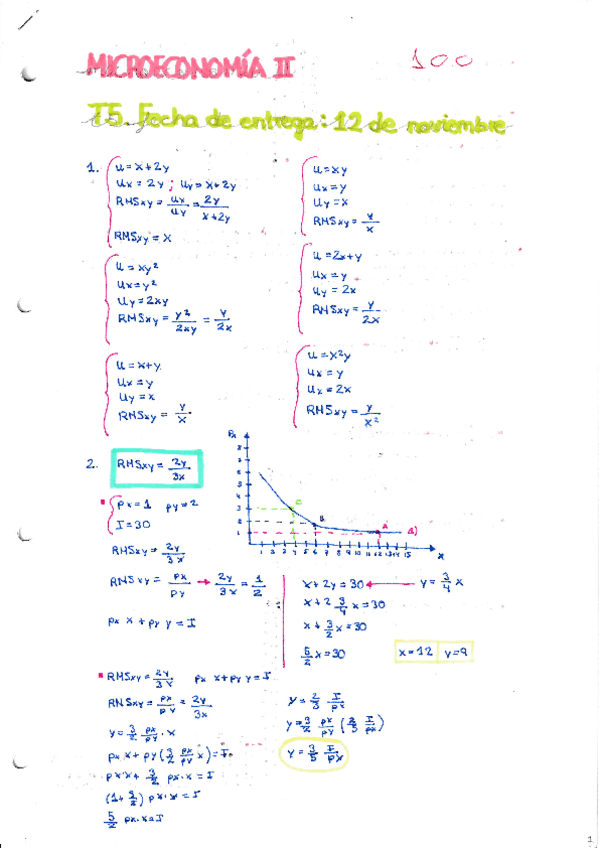 MICROECONOMÍA II
100
T5. Fecha de entrega: 12 de noviembre
1.
u = x+2y
ux = 2y ; uy = x+2y
RMSxy = ux/uy = 2y/x+2y
RMSxy = x
u = xy
ux = y
uy = x
RMSxy = y/x
u = xy²
ux = y²
uy = 2xy
RMSxy = y²/2xy = y/2x
u = 2x+y
ux = y
uy = 2x
RMSxy = y/2x
u = x+y
ux = y
uy = x
RMSxy = y/x
u = x²y
ux = y
ux = 2x
RMSxy = y/x²
2.
RMSxy = 2y/3x
px = 1 py = 2
I = 30
RMSxy = 2y/3x
RMSxy = px/py → 2y/3x = 1/2
px x + py y = I
Px
4
3
2
1
1 2 3 4 5 6 7 8 9 10 11 12 13 14 15
x
x + 2y = 30 ← y = 3/4 x
x + 2 3/4 x = 30
x + 3/2 x = 30
5/2 x = 30
x = 12 y = 9
RMSxy = 2y/3x px x + py y = I
RMSxy = px/py = 2y/3x
y = 3/2 px/py · x
px x + py (3/2 px/py x) = I
px x + 3/2 px · x = I
(1+3/2) px · x = I
5/2 px · x = I
y = 2/3 I/px
y = 3/2 px/py (2/5 I/px)
y = 3/5 I/px
1